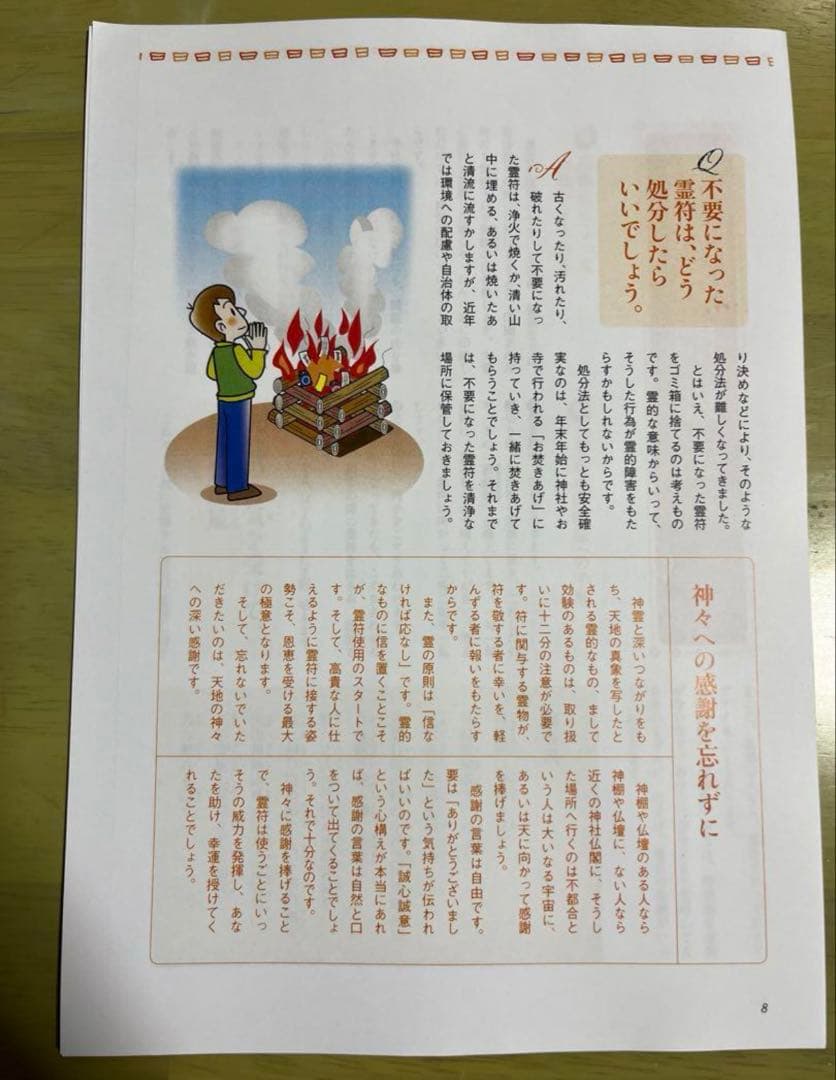 Q
不要になった
霊符は、どう
処分したら
いいでしょう。
A
古くなったり、汚れたり、
破れたりして不要になっ
た霊符は、浄火で焼くか、清い山
中に埋める、あるいは焼いたあ
と清流に流すかしますが、近年
では環境への配慮や自治体の取
り決めなどにより、そのような
処分法が難しくなってきました。
とはいえ、不要になった霊符
をゴミ箱に捨てるのは考えもの
です。霊的な意味からいって、
そうした行為が霊的障害をもた
らすかもしれないからです。
処分法としてもっとも安全確
実なのは、年末年始に神社やお
寺で行われる「お焚きあげ」に
持っていき、一緒に焚きあげて
もらうことでしょう。それまで
は、不要になった霊符を清浄な
場所に保管しておきましょう。
神々への感謝を忘れずに
神霊と深いつながりをも
ち、天地の真象を写したと
される霊的なもの、まして
効験のあるものは、取り扱
いに十二分の注意が必要で
す。符に関与する霊物が、
符を敬する者に幸いを、軽
んずる者に報いをもたらす
からです。
また、霊の原則は「信な
ければ応なし」です。霊的
なものに信を置くことこそ
が、霊符使用のスタートで
す。そして、高貴な人に仕
えるように霊符に接する姿
勢こそ、恩恵を受ける最大
の極意となります。
そして、忘れないでいた
だきたいのは、天地の神々
への深い感謝です。
神棚や仏壇のある人なら
神棚や仏壇に、ない人なら
近くの神社仏閣に、そうし
た場所へ行くのは不都合と
いう人は大いなる宇宙に、
あるいは天に向かって感謝
を捧げましょう。
感謝の言葉は自由です。
要は「ありがとうございまし
た」という気持ちが伝われ
ばいいのです。「誠心誠意」
という心構えが本当にあれ
ば、感謝の言葉は自然と口
をついて出てくることでしょ
う。それで十分なのです。
神々に感謝を捧げること
で、霊符は使うごとにいっ
そうの威力を発揮し、あな
たを助け、幸運を授けてく
れることでしょう。
8